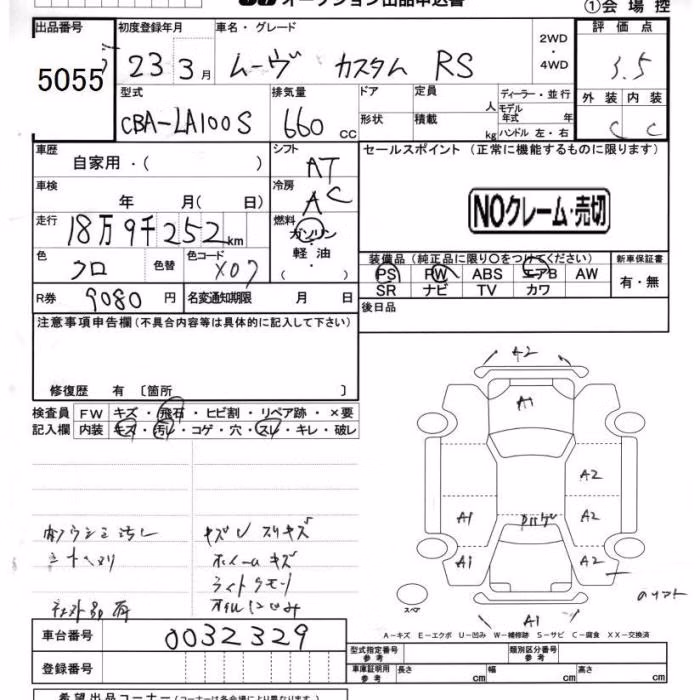 オークション出品申込書
①会場控
出品番号 5055
初度登録年月 23 3月
車名・グレード ムーヴ カスタム RS
2WD・4WD
評価点 3.5
型式 CBA-LA100S
排気量 660 cc
ドア 形状
定員 人 積載 kg
ディーラー・並行
モデル年式 年
ハンドル 左・右
外装 内装
C C
車歴 自家用・( )
シフト AT
セールスポイント (正常に機能するものに限ります)
車検 年 月( 日)
冷房 AC
NOクレーム・売切
走行 18万9千252km
燃料 ガソリン・軽油・( )
色 クロ 色替 色コード X07
装備品 (純正品に限り○をつけてください)
新車保証書
PS PW ABS エアB AW
有・無
SR ナビ TV カワ
R券 9080円 名変通知期限 月 日
後日品
注意事項申告欄 (不具合内容等は具体的に記入して下さい)
修復歴 有 〔箇所 〕
検査員記入欄
FW キズ・飛石・ヒビ割・リペア跡・×要
内装 キズ・汚レ・コゲ・穴・スレ・キレ・破レ
A2
A1
A2
A1 A2
A1 A2
A1
キズ スリキズ
ホイールキズ
スペア
A－キズ E－エクボ U－凹み W－補修跡 S－サビ C－腐食 XX－交換済
車台番号 0032329
型式指定番号 参考
類別区分番号 参考
登録番号
車庫証明用 参考 長さ cm 幅 cm 高さ cm
希望出品コーナー (コーナーは各会場により異なります)